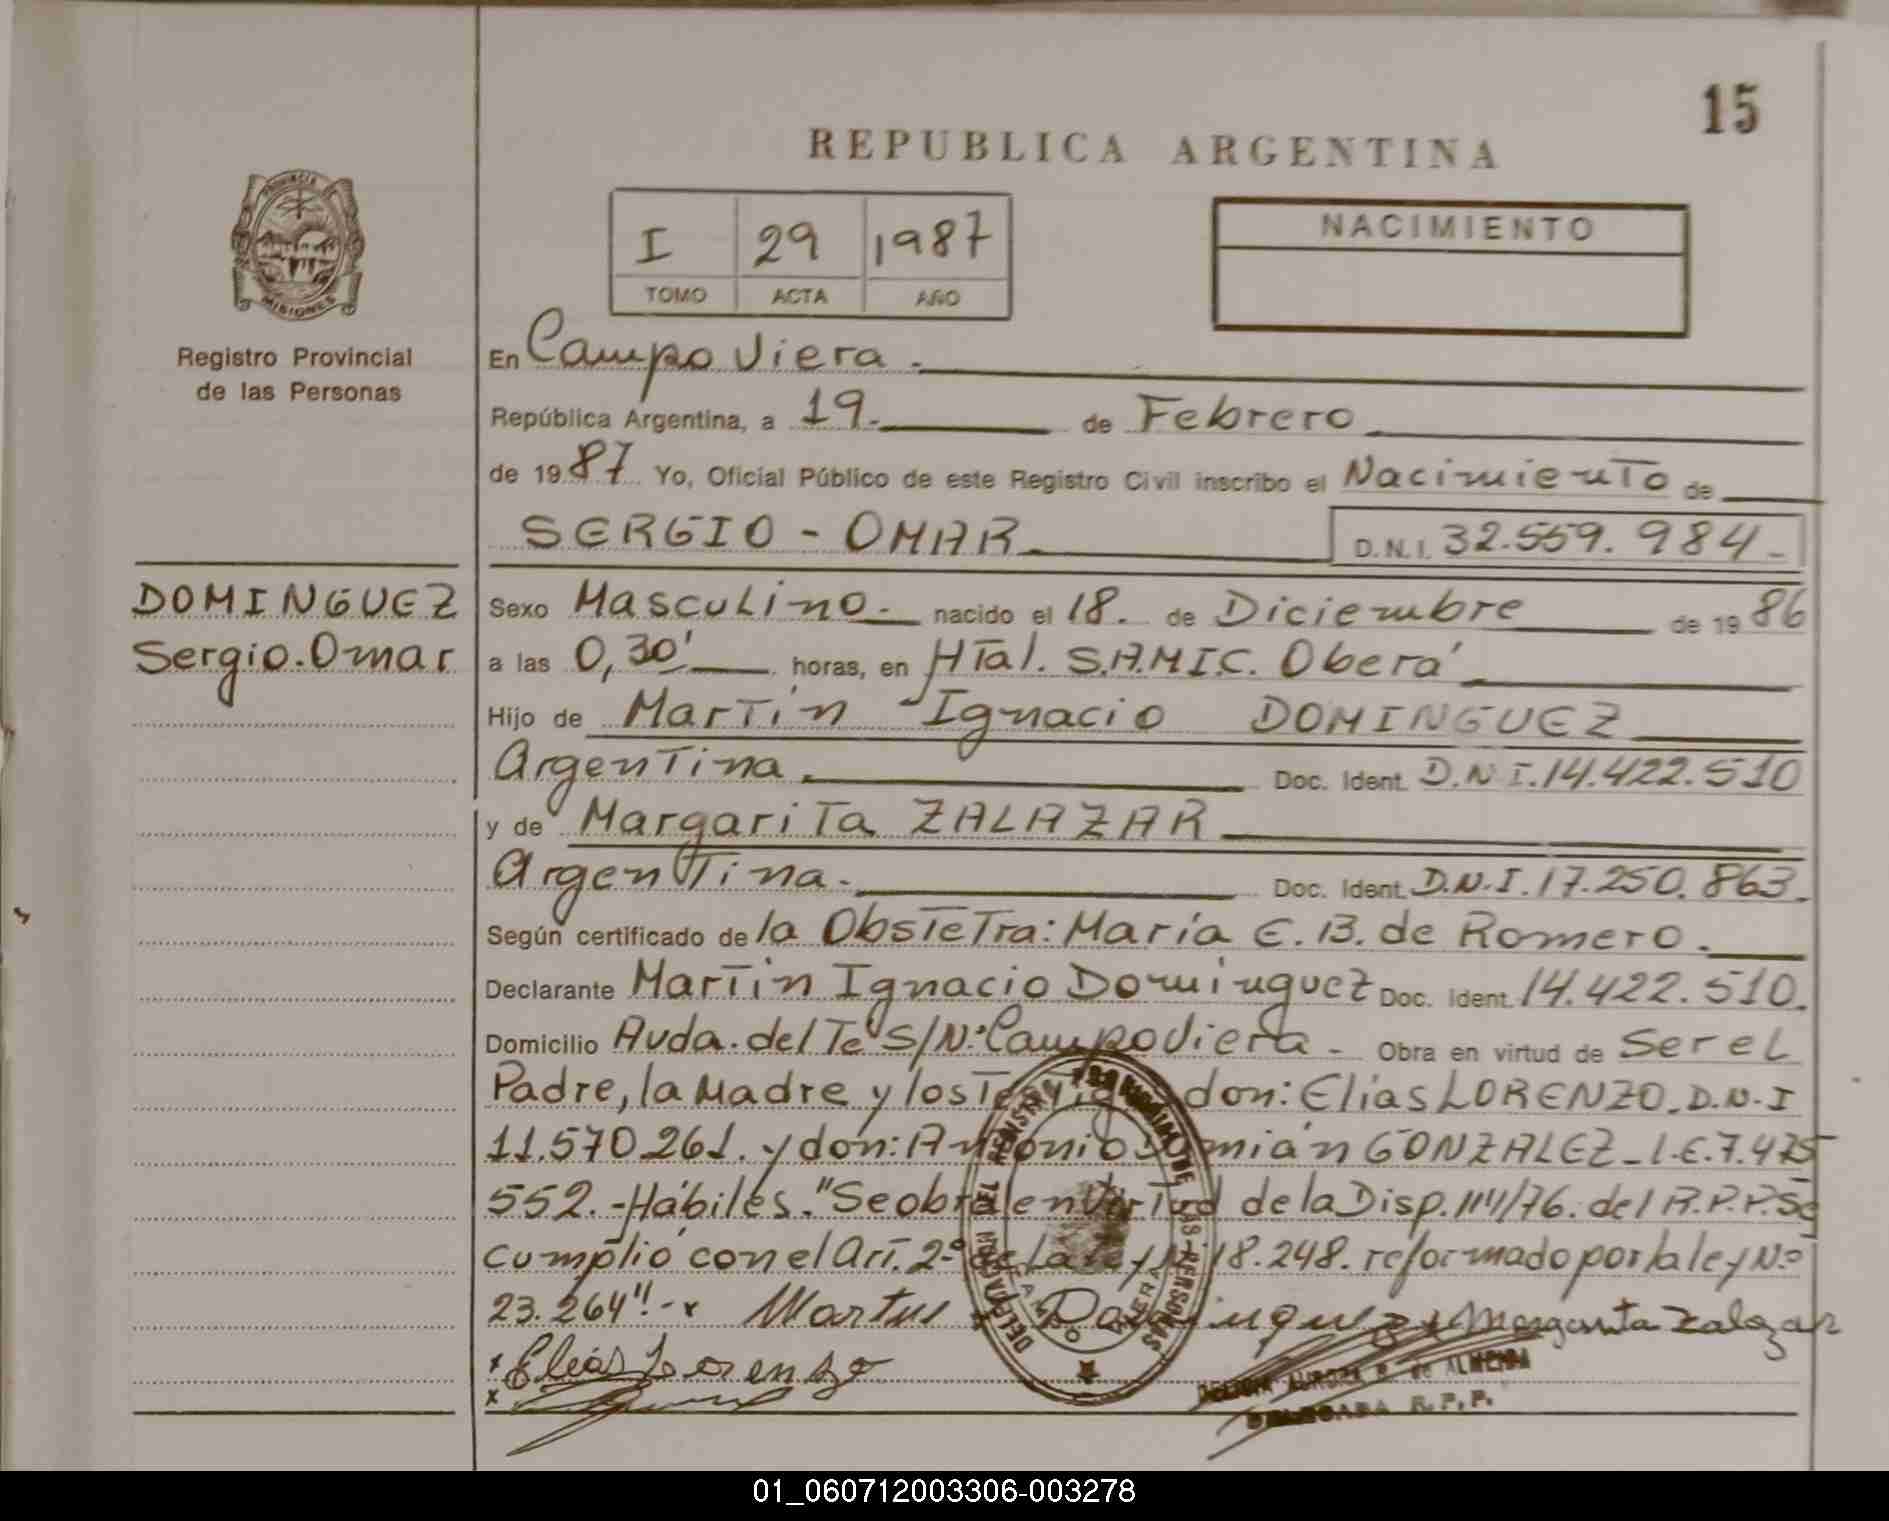 15
REPUBLICA ARGENTINA
I 29 1987
TOMO ACTA AÑO
NACIMIENTO
PROVINCIA DE MISIONES
Registro Provincial
de las Personas
En Campo Viera.
República Argentina, a 19. de Febrero
de 1987 Yo, Oficial Público de este Registro Civil inscribo el Nacimiento de
SERGIO - OMAR D.N.I. 32.559.984-
DOMINGUEZ
Sergio.Omar
Sexo Masculino. nacido el 18. de Diciembre de 1986
a las 0,30' horas, en HTal. S.A.M.I.C. Oberá
Hijo de Martín Ignacio DOMINGUEZ
Argentina. Doc. Ident. D.N.I.14.422.510
y de Margarita ZALAZAR
Argentina. Doc. Ident. D.N.I.17.250.863.
Según certificado de la Obstetra: María E. B. de Romero.
Declarante Martin Ignacio Dominguez Doc. Ident. 14.422.510.
Domicilio Avda. del Té S/N° Campo Viera - Obra en virtud de Ser el
Padre, la Madre y los Testigos don: Elias LORENZO. D.N.I
11.570.261. y don: Antonio Damián GONZALEZ - L.E. 7.475
552.- Hábiles. "Se obra en virtud de la Disp. 114/76. del R.P.P. Se
cumplió con el Art. 2° de la Ley N° 18.248. reformado por la ley N°
23.264".- x Martin Dominguez x Margarita Zalazar
x Elias Lorenzo
x
DELEGACION DEL REGISTRO PROVINCIAL DE LAS PERSONAS
CAMPO VIERA
AURORA de ALMEIDA
DELEGADA R.P.P.
01_060712003306-003278